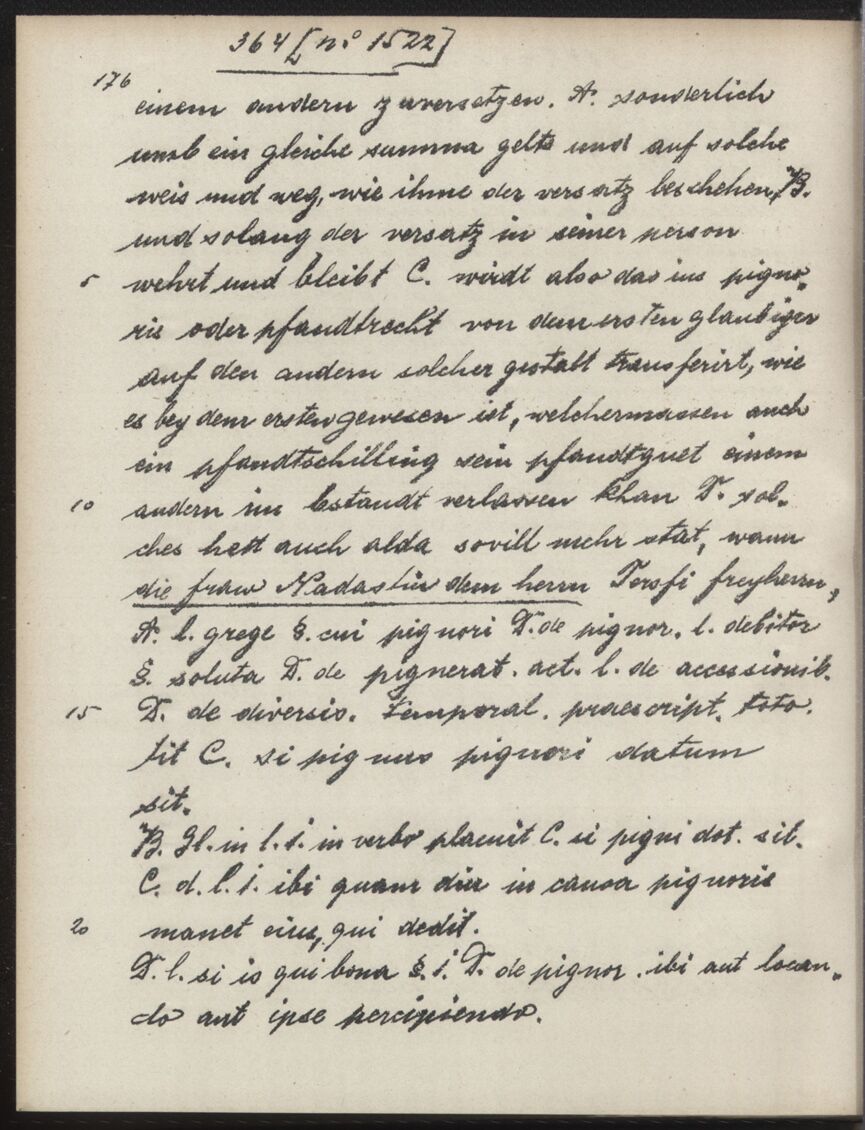 364 [n.° 1522]
176
einem andern zuversetzen. A. sonderlich
umb ein gleiche summa gelts und auf solche
weis und weg, wie ihme der versatz beschehen, B.
und solang der versatz in seiner person
5 wehrt und bleibt C. wirdt also das ius pigno-
ris oder pfandtrecht von dem ersten glaubiger
auf den andern solcher gestalt transferirt, wie
es bey dem ersten gewesen ist, welchermassen auch
ein pfandtschilling sein pfandtguet einem
10 andern im bstandt verlassen khan D. sol-
ches hett auch alda sovill mehr stat, wann
die fraw Nadastin dem herrn Tersfi freyherrn,
A. l. grege §. cui pignori D. de pignor. l. debitor
§. soluta D. de pignerat. act. l. de accessionib.
15 D. de diversis. temporal. praescript. toto.
tit C. si pignus pignori datum
sit.
B. Gl. in l. 1. in verbo placuit C. si pigni dot. sit.
C. d. l. 1. ibi quam diu in causa pignoris
20 manet eius, qui dedit.
D. l. si is qui bona §. 1. D. de pignor. ibi aut locan-
do aut ipse percipiendo.